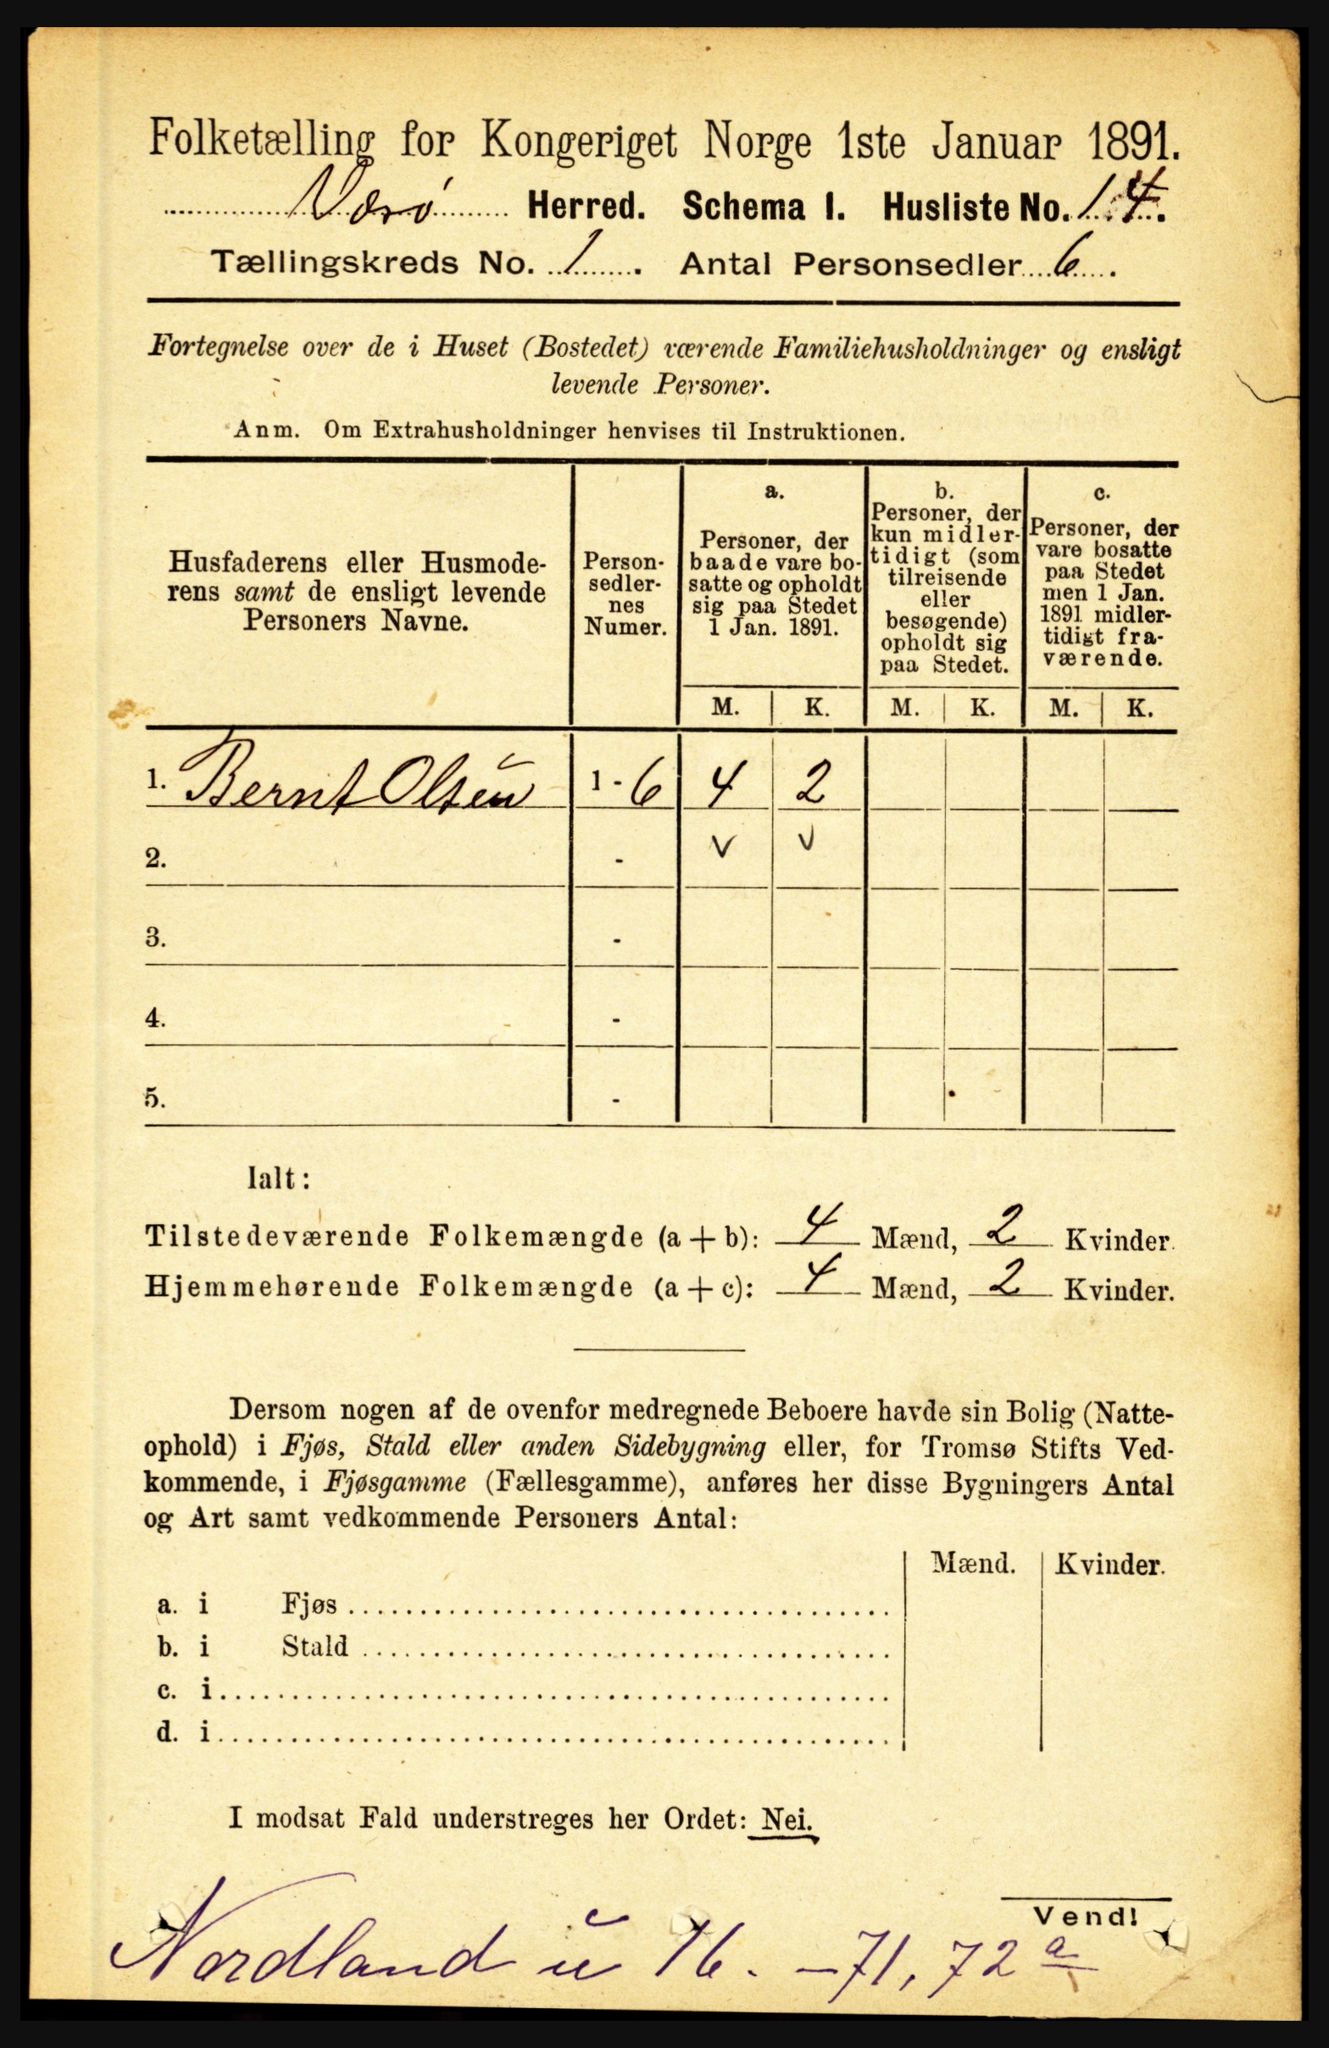 Folketælling for Kongeriget Norge 1ste Januar 1891.
Værø Herred. Schema I. Husliste No. 14.
Tællingskreds No. 1. Antal Personsedler 6.
Fortegnelse over de i Huset (Bostedet) værende Familiehusholdninger og ensligt
levende Personer.
Anm. Om Extrahusholdninger henvises til Instruktionen.
Husfaderens eller Husmode-
rens samt de ensligt levende
Personers Navne.
Person-
sedler-
nes
Numer.
a.
Personer, der
baade vare bo-
satte og opholdt
sig paa Stedet
1 Jan. 1891.
b.
Personer, der
kun midler-
tidigt (som
tilreisende
eller
besøgende)
opholdt sig
paa Stedet.
c.
Personer, der
vare bosatte
paa Stedet
men 1 Jan.
1891 midler-
tidigt fra-
værende.
M. K. M. K. M. K.
1. Bernt Olsen 1 - 6 4 2
2. - v v
3. -
4. -
5. -
Ialt:
Tilstedeværende Folkemængde (a + b): 4 Mænd, 2 Kvinder.
Hjemmehørende Folkemængde (a + c): 4 Mænd, 2 Kvinder.
Dersom nogen af de ovenfor medregnede Beboere havde sin Bolig (Natte-
ophold) i Fjøs, Stald eller anden Sidebygning eller, for Tromsø Stifts Ved-
kommende, i Fjøsgamme (Fællesgamme), anføres her disse Bygningers Antal
og Art samt vedkommende Personers Antal:
Mænd. Kvinder.
a. i Fjøs
b. i Stald
c. i
d. i
I modsat Fald understreges her Ordet: Nei.
Vend!
Nordland u 16. - 71, 72 a